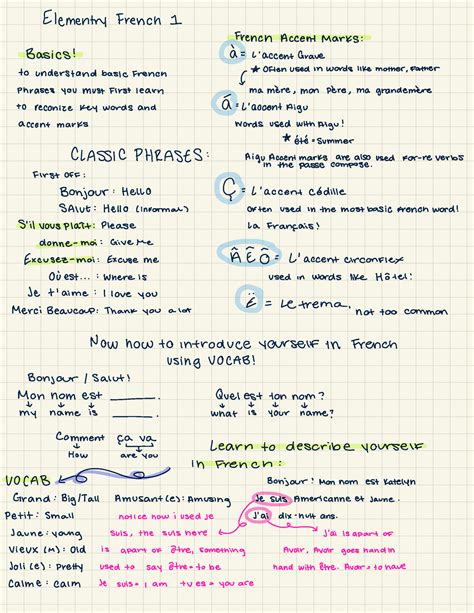 Elementry French 1
Basics!
to understand basic French
Phrases you must First learn
to reconize key words and
accent marks
French Accent Marks:
à = L'accent Grave
* Often used in words like mother, Father
ma mère, mon Père, ma grandemère
á = L'accent Aigu
Words used with Aigu!
* été = Summer
Aigu Accent marks are also used for -re verbs
in the passe compose.
Ç = L'accent cédille
often used in the most basic French word!
La Français!
Â Ê Ô = L'accent circonflex
used in words like Hôtel!
Ë = Le trema, not too common
CLASSIC PHRASES:
First off:
Bonjour: Hello
SAlut: Hello (informal)
S'il vous plaît: Please
donne-moi: Give Me
Excusez-moi: Excuse me
Où est...: Where is
Je t'aime: I love you
Merci Beaucoup: Thank you a lot
Now how to introduce yourself in French
using VOCAB!
Bonjour / Salut!
Mon nom est ____.
my name is ____.
Quel est ton nom?
what is your name?
Comment ça va
How are you
Learn to describe yourself
in French:
Bonjour! Mon nom est Katelyn
Je suis Americanne et Jaune.
J'ai dix-nuit ans.
VOCAB
Grand: Big/Tall
Petit: Small
Jaune: young
Vieux (M): Old
Joli(e): Pretty
Calme: Calm
Amusant(e): Amusing
notice how i used je
suis, the suis here
is apart of être, something
used to say être = to be
Je suis = I am tu es = you are
J'ai is apart of
Avoir, Avoir goes hand in
hand with être. Avoir = to have